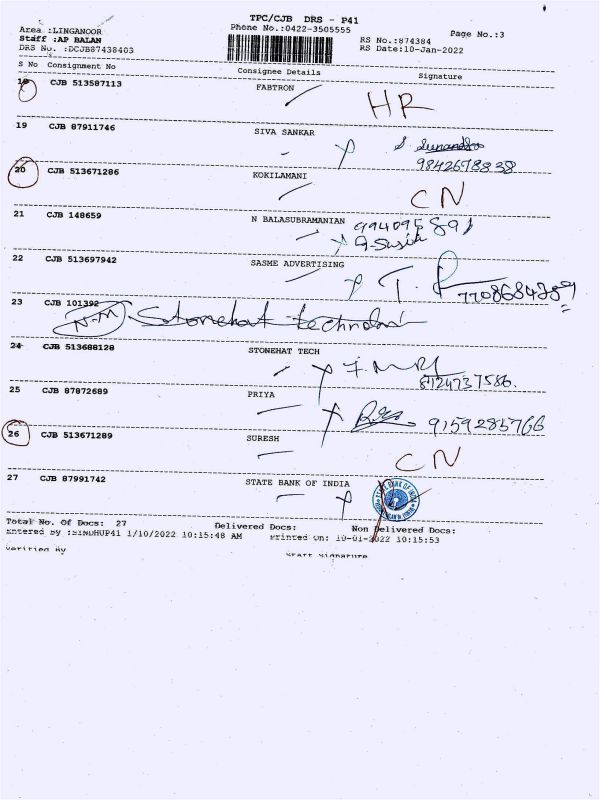 TPC/CJB DRS - P41
Area :LINGANOOR Phone No.:0422-3505555 Page No.:3
Staff :AP BALAN RS No.:874384
DRS No. :DCJB87438403 RS Date:10-Jan-2022
S No Consignment No Consignee Details Signature
18 CJB 513587113 FABTRON
HR
19 CJB 87911746 SIVA SANKAR
9842678838
20 CJB 513671286 KOKILAMANI
CN
21 CJB 148659 N BALASUBRAMANIAN
22 CJB 513697942 SASME ADVERTISING
23 CJB 101392
N-M Stonehat
24 CJB 513688128 STONEHAT TECH
8124737586.
25 CJB 87872689 PRIYA
9159285766
26 CJB 513671289 SURESH
CN
27 CJB 87991742 STATE BANK OF INDIA
Total No. Of Docs: 27 Delivered Docs: Non Delivered Docs:
Entered By :SINDHUP41 1/10/2022 10:15:48 AM Printed On: 10-01-2022 10:15:53
Verified By Staff Signature